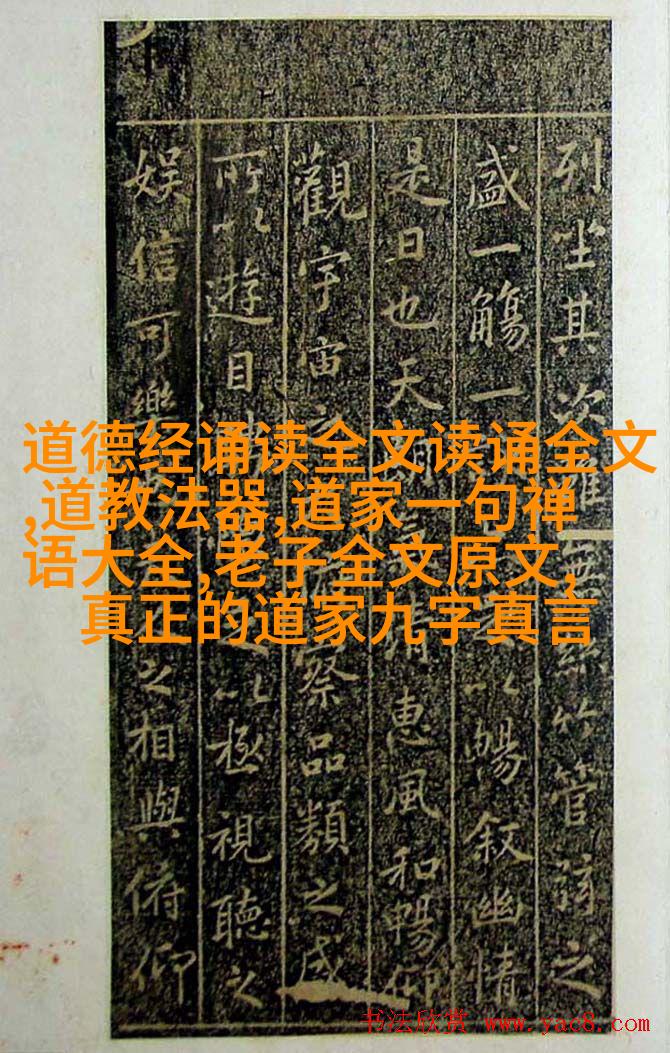 列坐其次雖無絲竹管弦之
盛一觴一以暢叙幽情
是日也天朗清惠風和暢仰
觀宇宙之察品類之盛
所以遊目以極視聽之
娛信可樂之相與俯仰
道德经诵读全文读诵全文
,道教法器,道家一句禅
语大全,老子全文原文,
真正的道家九字真言
书法欣赏 www.yac8.com